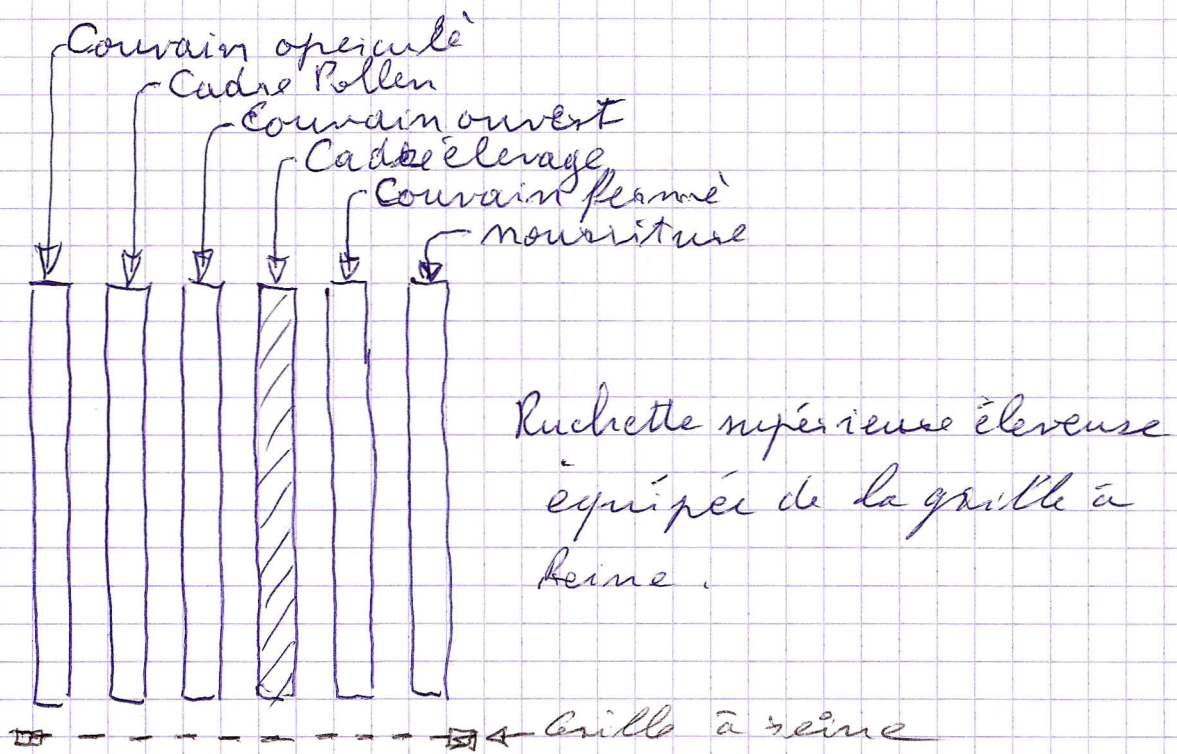 Couvain operculé
Cadre Pollen
Couvain ouvert
Cadre élevage
Couvain fermé
nourriture
Ruchette supérieure éleveuse
équipée de la grille à
Reine.
Grille à reine